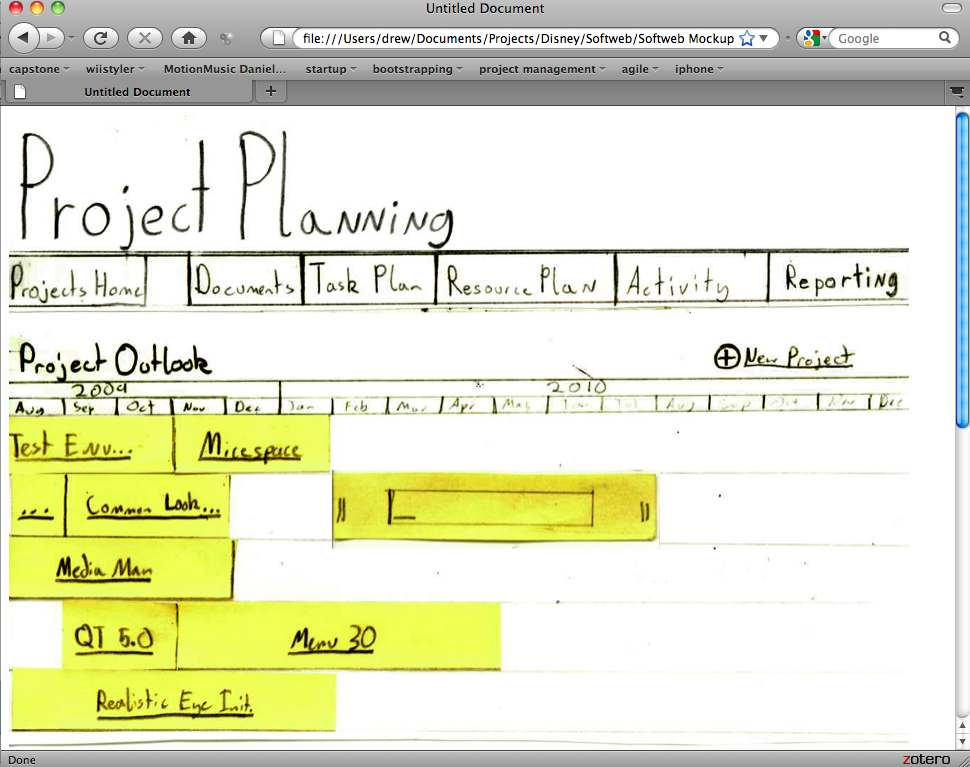 Untitled Document
file:///Users/drew/Documents/Projects/Disney/Softweb/Softweb Mockup
Google
capstone wiistyler MotionMusic Daniel... startup bootstrapping project management agile iphone
Untitled Document
Project Planning
Projects Home Documents Task Plan Resource Plan Activity Reporting
Project Outlook
New Project
2009 2010
Aug Sep Oct Nov Dec Jan Feb Mar Apr May Jun Jul Aug Sep Oct Nov Dec
Test Env... Micespace
... Common Look...
Media Man
QT 5.0 Menu 30
Realistic Eye Init.
Done
zotero